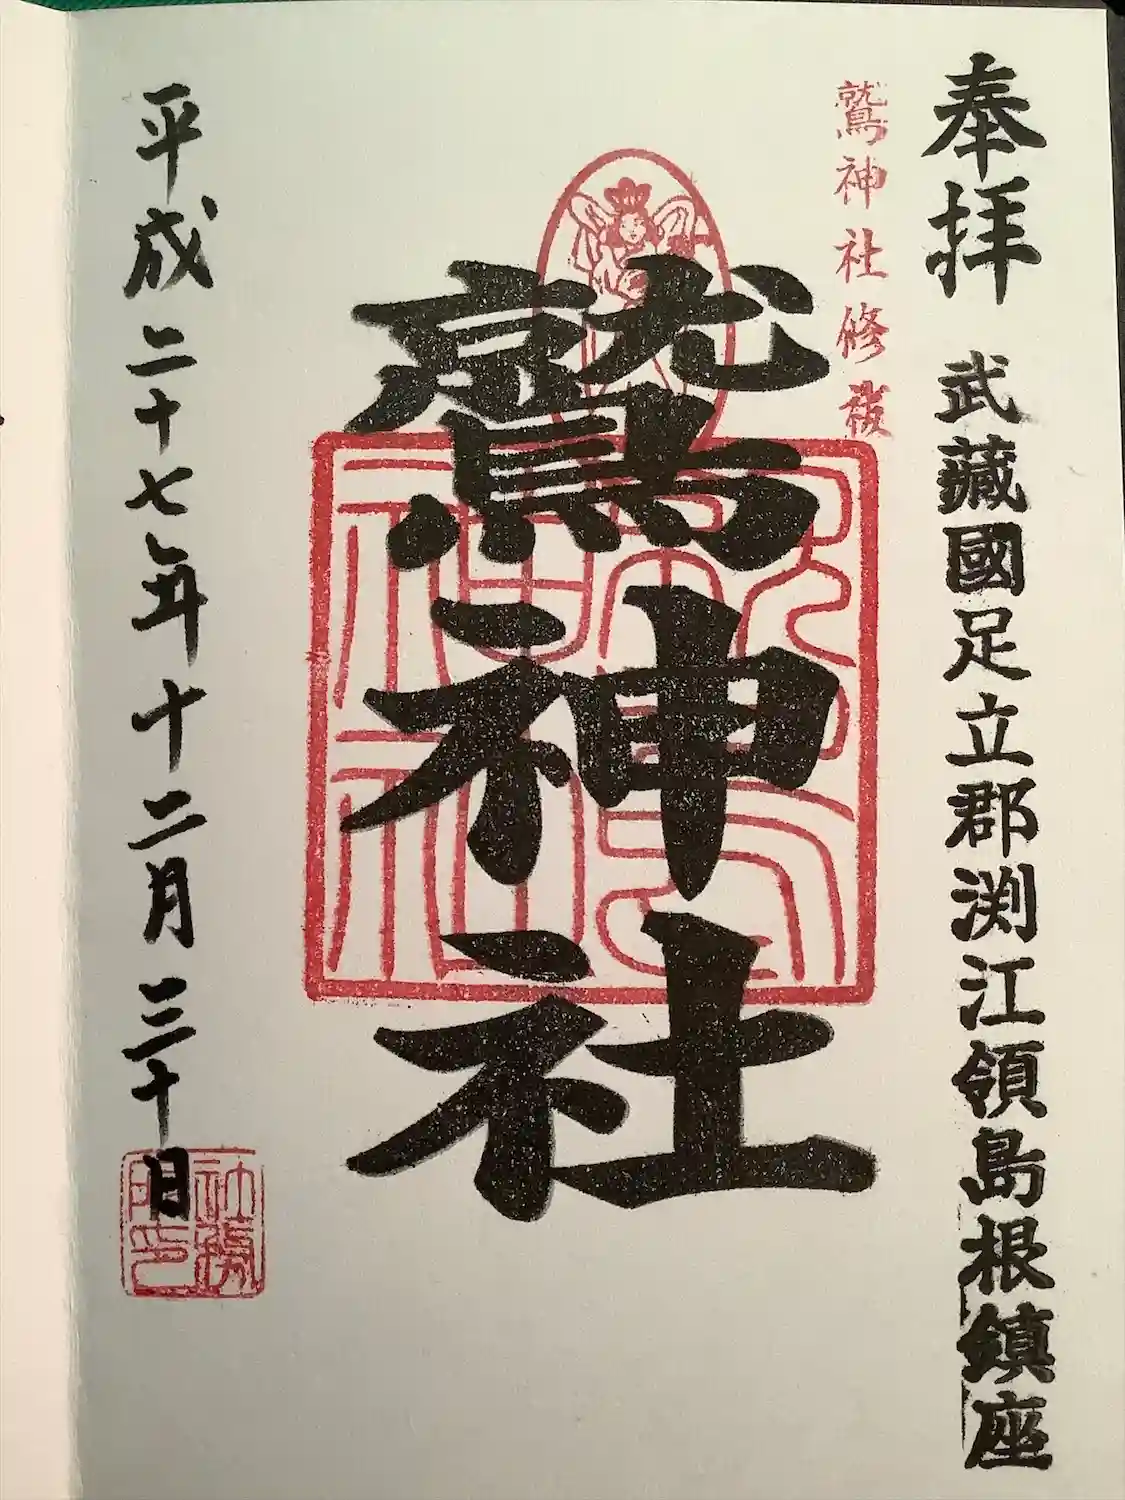 奉拝 武藏國足立郡渕江領島根鎮座
鷲神社修祓
鷲神社
平成二十七年十二月三十日
社務所印